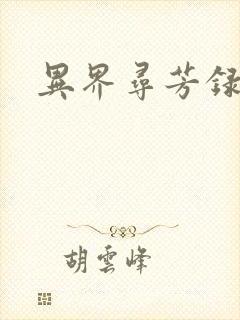 異界尋芳録
胡雲峰